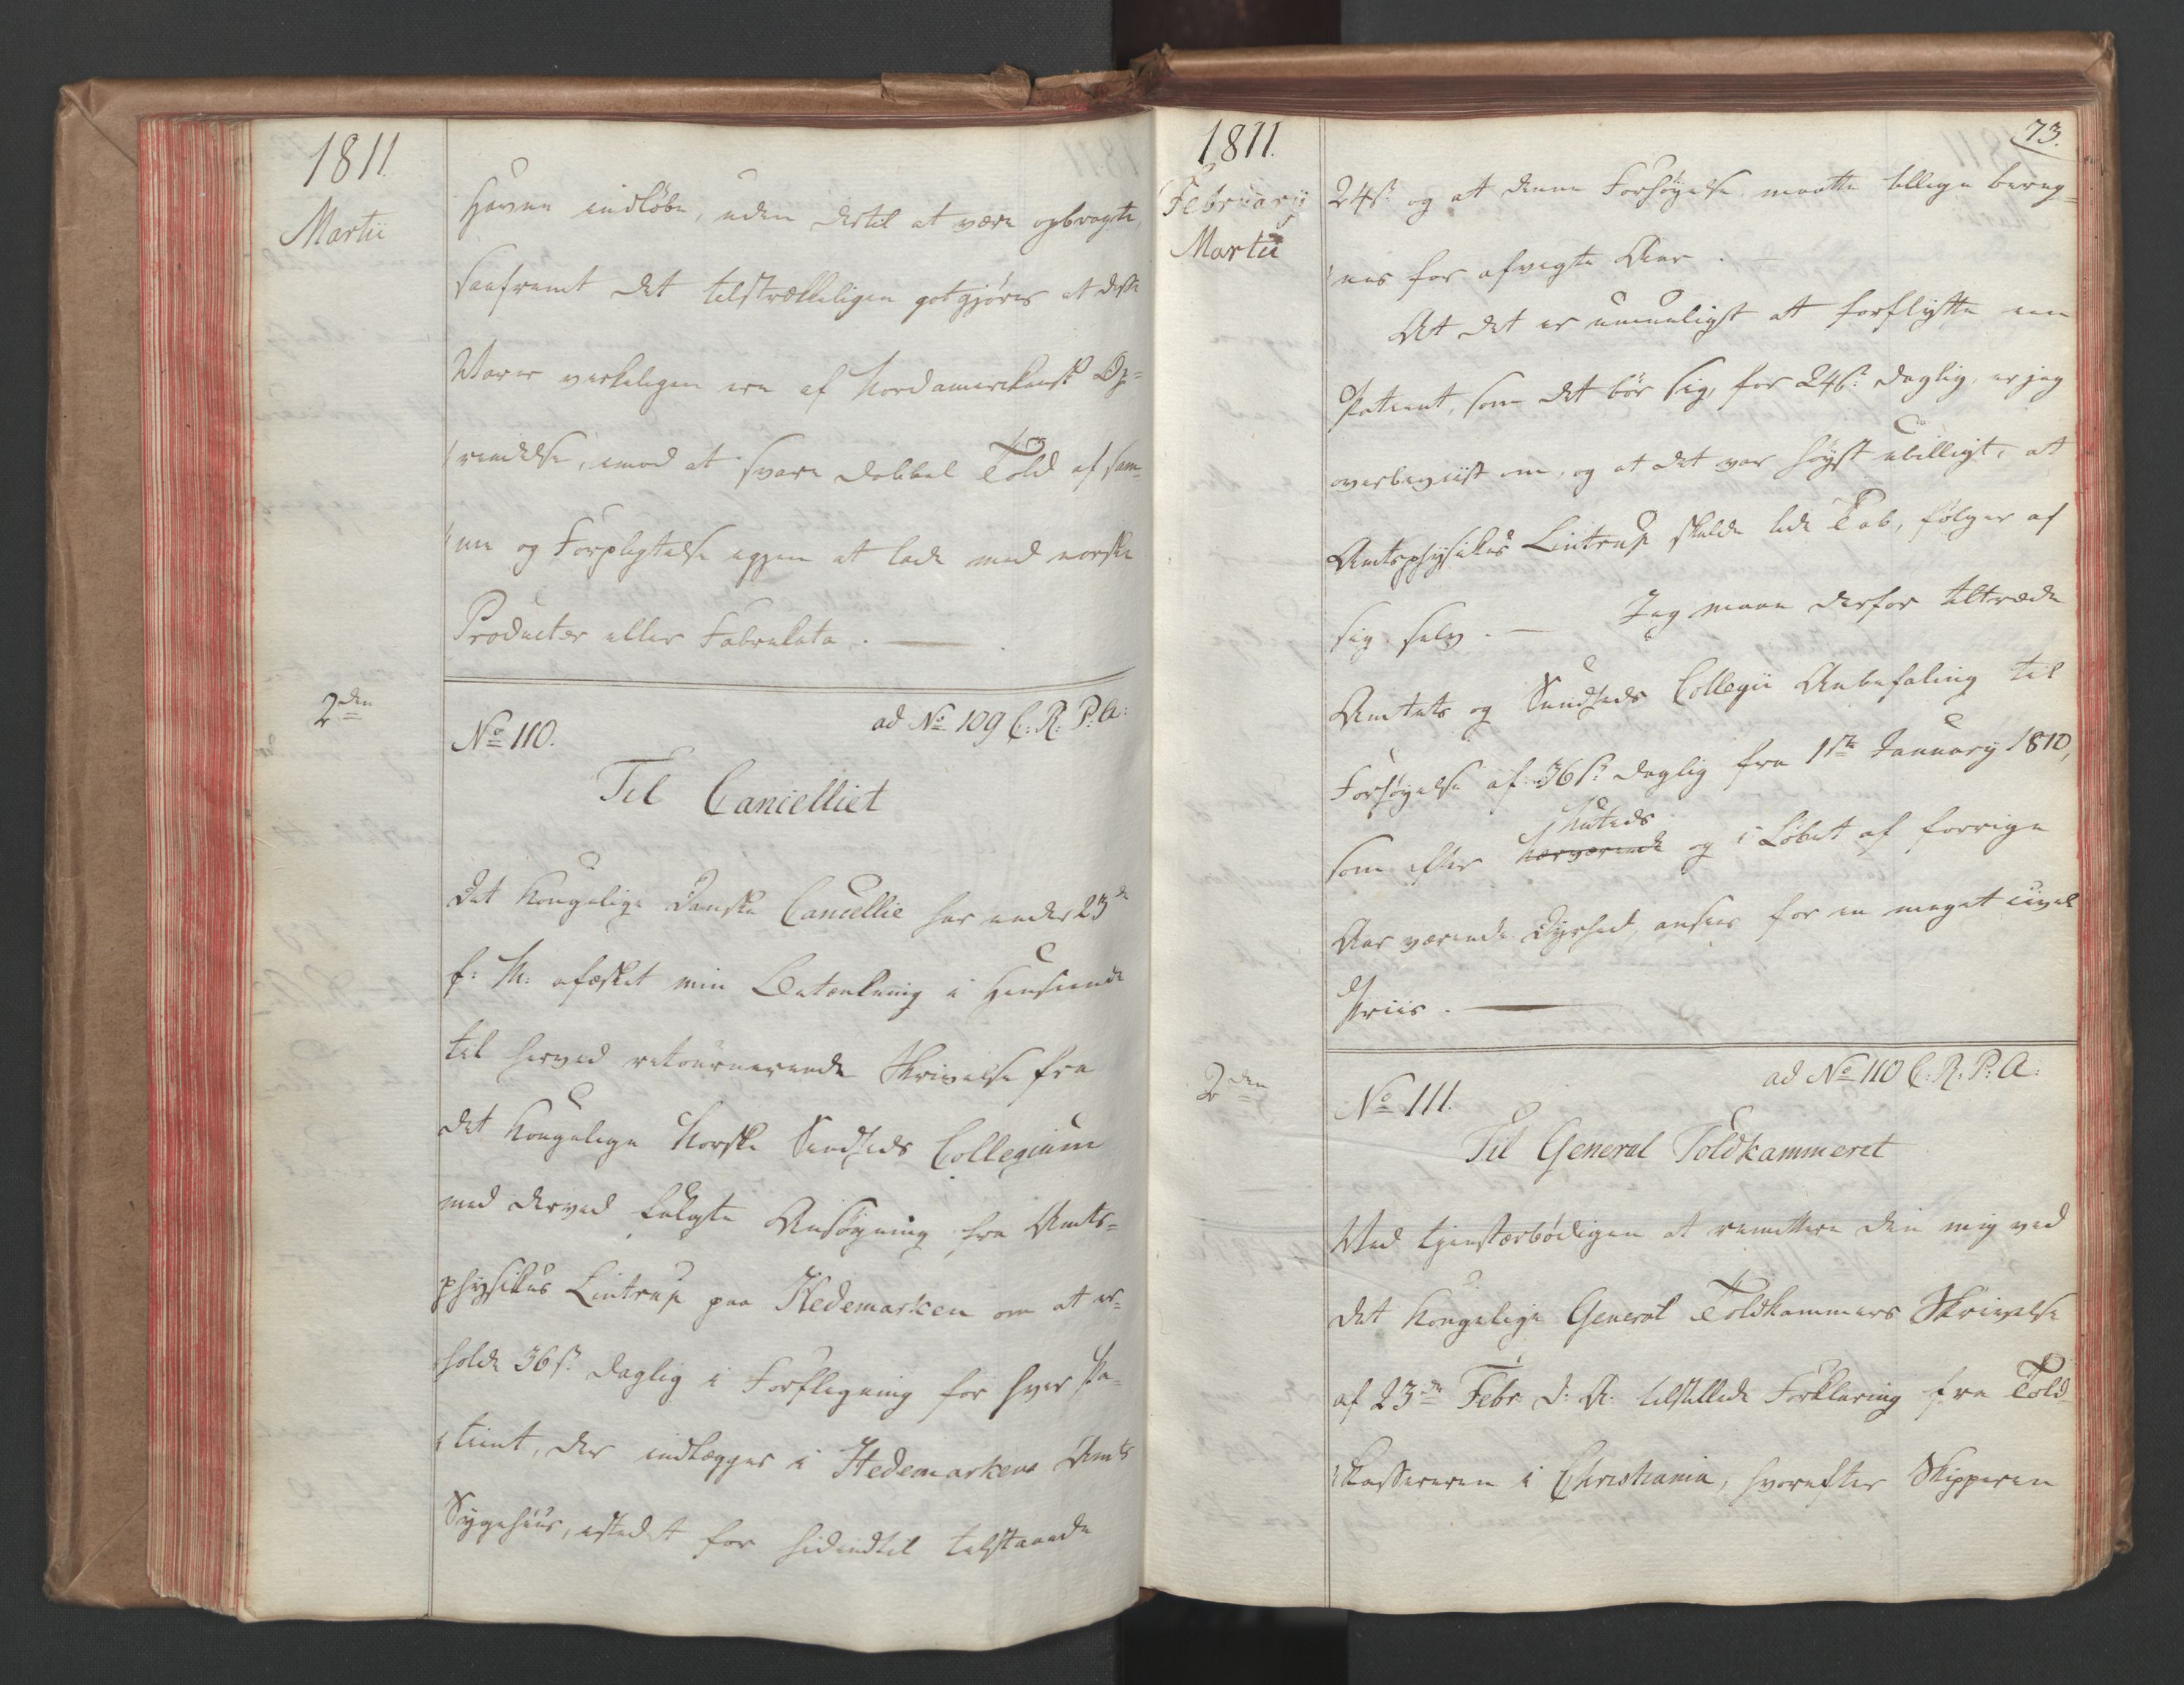 1811.
Martii
Havne indløbe, uden dertil at være opbragte,
saafremt det tilstrækkeligen gotgjøres at disse
Warer verkeligen ere af Nordamerikansk Op=
rindelse, imod at svare dobbel Told af sam¬
me og Forpligtelse igjen at lade med norske
Producter eller Fabrikata. —
2den
No 110.
ad No 109 C: R: P: A:
Til Cancelliet
Det Kongelige Danske Cancellie har under 23de
f: M: afæsket min Betænkning i Henseende
til herved retournerende Skrivelse fra
det Kongelige Norske Sundheds Collegium
med derved fulgte Ansøgning fra Amts=
physikus Lintrup paa Hedemarken om at er=
holde 36 s. daglig i Forflegning for hver Pa=
tient, der indlægges i Hedemarkens Amts
Sygehuus, istedet for hidindtil tilstaaede
1811.
Februarii
Martii
73.
24 s. og at denne Forhøyelse maatte tillige bereg=
nes for afvigte Aar. —
At det er umueligt at forflytte en
Patient, som det bør sig, for 24 s. daglig, er jeg
overbeviist om, og at det var høyst ubilligt, at
Amtsphysikus Lintrup skulde lide Tab, følger af
sig selv. — Jeg maae derfor tiltræde
Amtets og Sundheds Collegii Anbefaling til
Forhøyelse af 36 s. daglig fra 1ste January 1810,
som efter nærværende og i Løbet af forrige
Aar værende Dyrhed, ansees for en meget civil
Priis. —
2den
No 111.
ad No 110 C: R: P: A:
Til General Toldkammeret
Ved tjenstærbødigen at remittere den mig ved
det Kongelige General Toldkammers Skrivelse
af 23de Febr. d: A: tilstillede Forklaring fra Told¬
kassereren i Christiania, hvorefter Skipperen